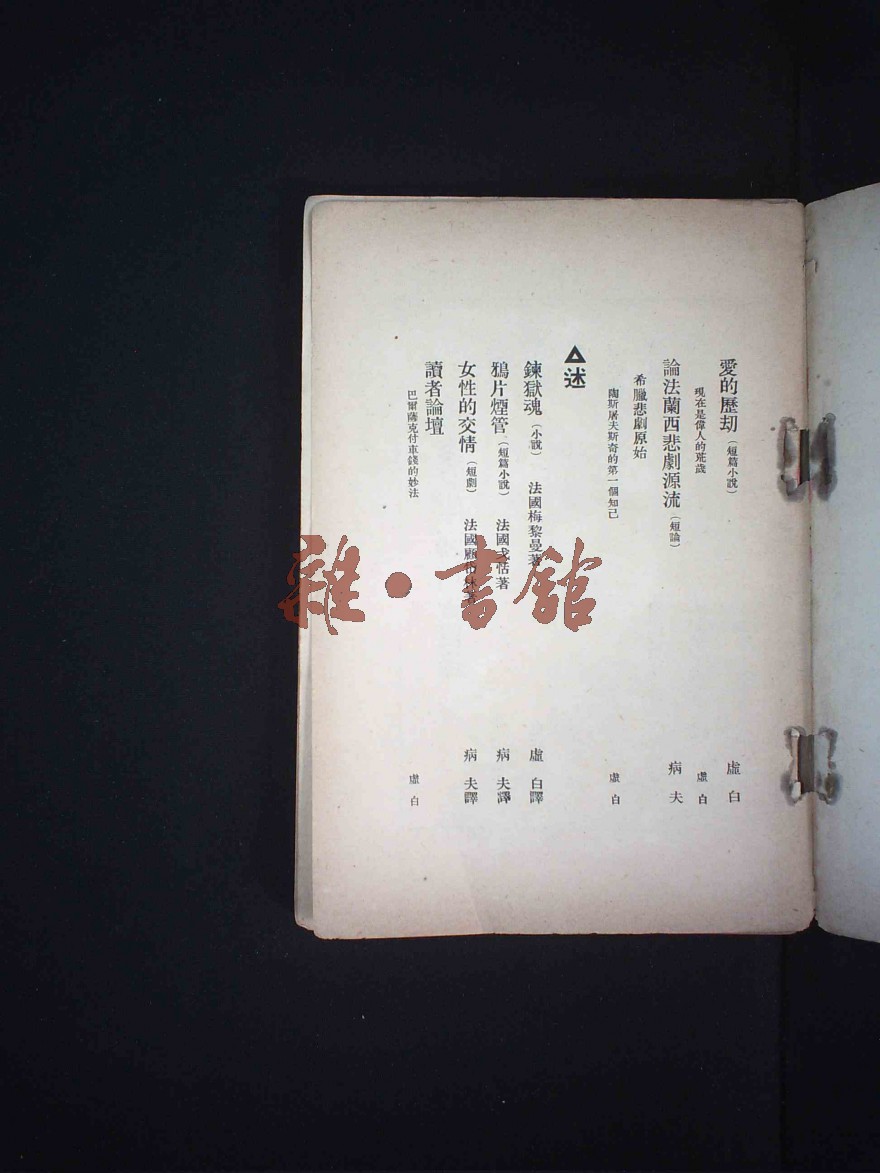 愛的歷刧（短篇小說） 虛白
現在是偉人的荒歲 虛白
論法蘭西悲劇源流（短論） 病夫
希臘悲劇原始
陶斯屠夫斯奇的第一個知己 虛白
▲述
鍊獄魂（小說） 法國梅黎曼著 虛白譯
鴉片煙管（短篇小說） 法國戈恬著 病夫譯
女性的交情（短劇） 法國顧 著 病夫譯
讀者論壇
巴爾薩克付車錢的妙法 虛白
雜·書館